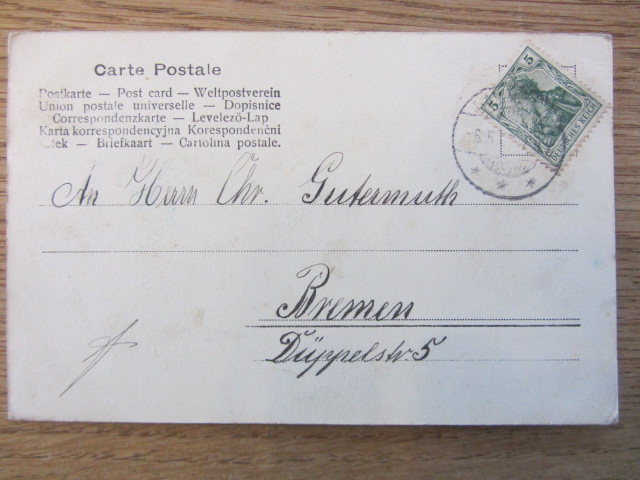 Carte Postale
Postkarte — Post card — Weltpostverein
Union postale universelle — Dopisnice
Correspondenzkarte — Levelező-Lap
Karta korrespondencyjna Korespondenční
lístek — Briefkaart — Cartolina postale.
5
5
DEUTSCHES REICH
An Herrn Chr. Gutermuth
Bremen
Düppelstr. 5